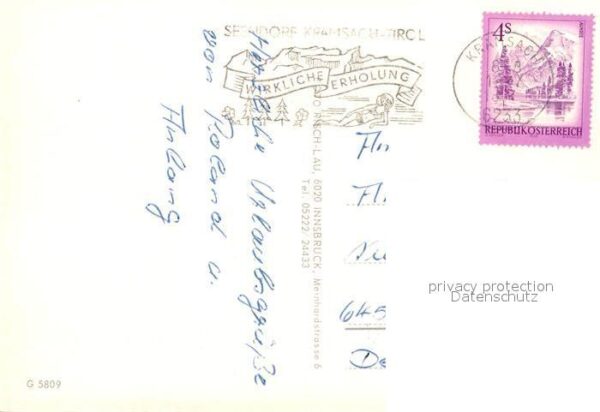 SEENDORF KRAMSACH-TIROL
WIRKLICHE ERHOLUNG
KRAMSACH
6233
4S
REPUBLIK ÖSTERREICH
Herzliche Urlaubsgrüße
von Roland u.
RISCH-LAU, 6020 INNSBRUCK, Meinhardstrasse 6
Tel. 05222/24433
645
privacy protection
Datenschutz
G 5809